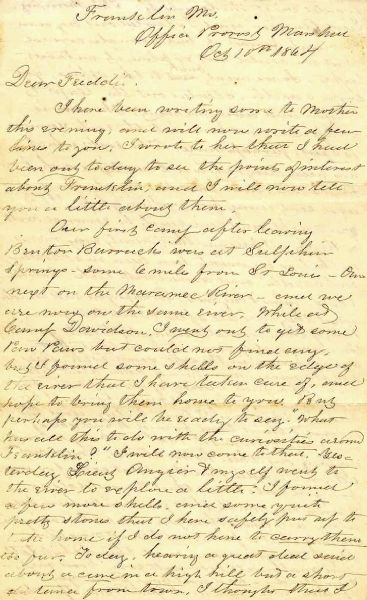 Franklin Mo.
Office Provost Marshall
Oct 10th 1864
Dear Freddi
I have been writing some to Mother
this evening, and will now write a few
lines to you, I wrote to her that I had
been out to day to see the points of interest
about Franklin, and I will now tell
you a little about them
Our first camp after leaving
Benton Barracks was at Sulphur
Springs - some 6 miles from St Louis - Our
next on the Maramec River - and we
are now on the same river. While at
Camp Davidson, I went out to get some
Paw Paws but could not find any,
but I found some shells on the edge of
the river that I have taken care of, and
hope to bring them home to you. But
perhaps you will be ready to say, "What
has all this to do with the curiosities around
Franklin?" I will now come to that. Yes-
terday Lieut Angier & myself went to
the river to explore a little: I found
a few more shells, and some quite
pretty stones that I have safely put up to
home if I do not have to carry them
too far. To day, hearing a great deal said
about a cave in a high hill but a short
distance from town, I thought that I